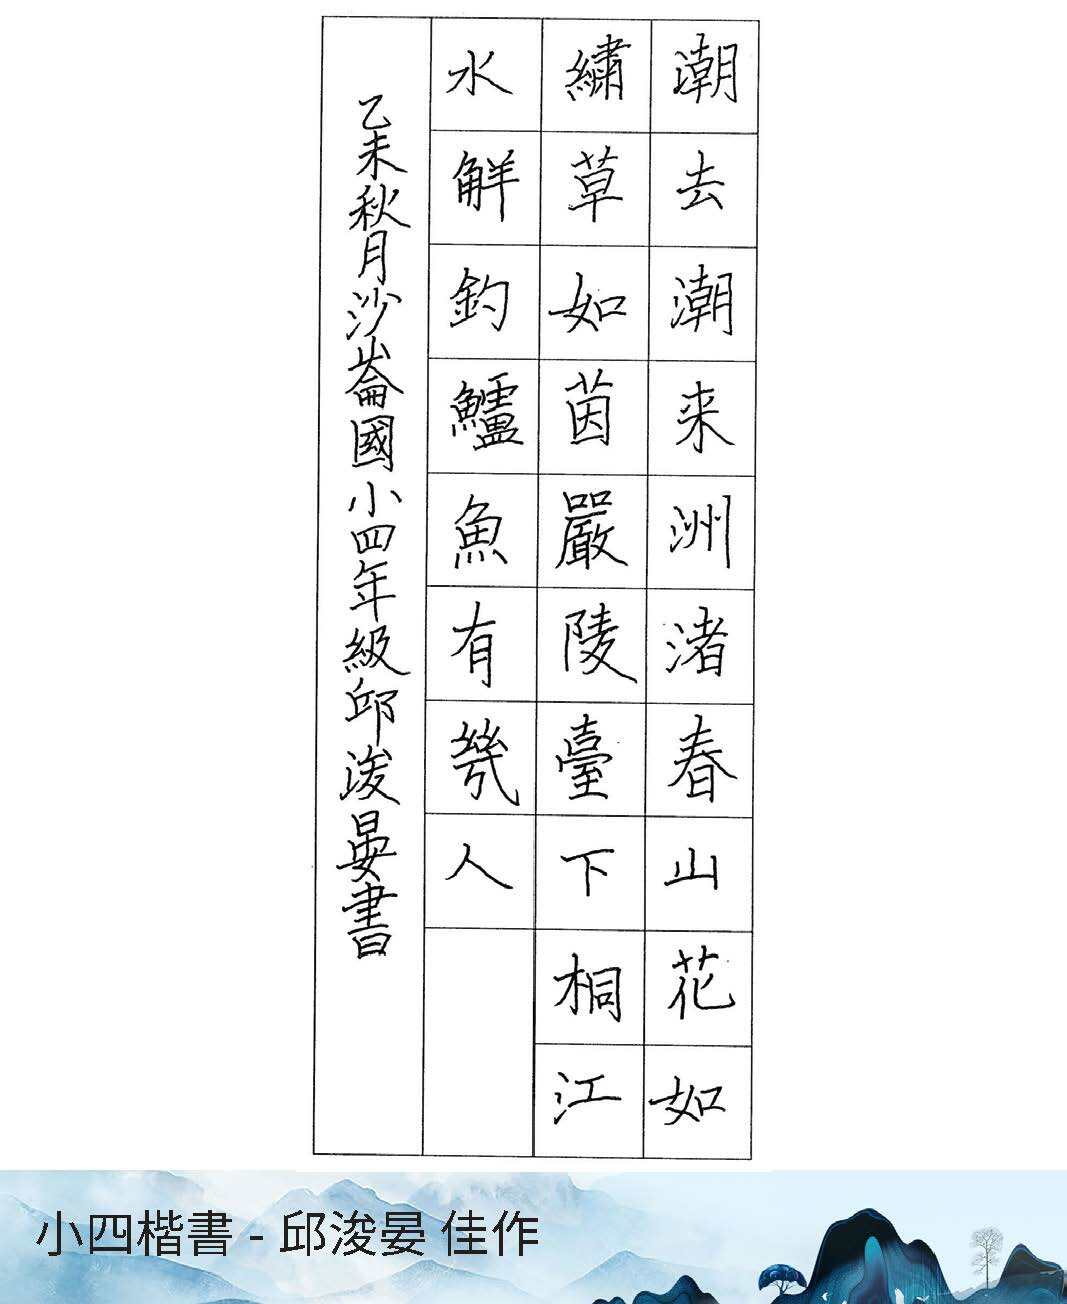 潮去潮来洲渚春山花如
繡草如茵嚴陵臺下桐江
水觧釣鱸魚有幾人
乙未秋月沙崙國小四年級邱浚晏書
小四楷書 - 邱浚晏 佳作